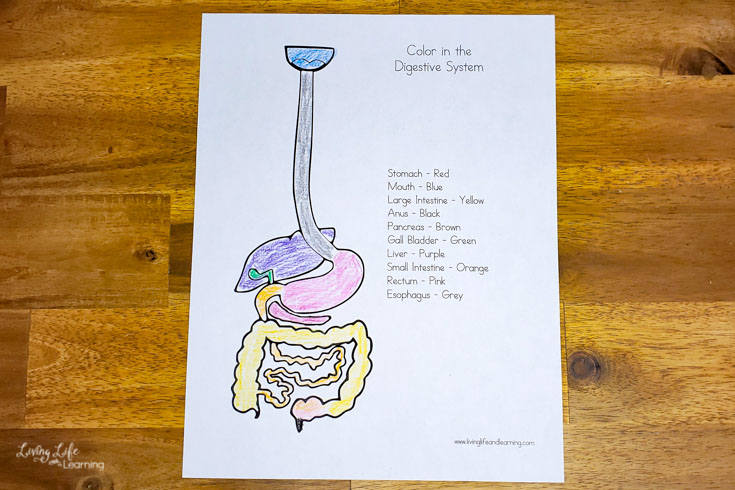 Color in the
Digestive System
Stomach - Red
Mouth - Blue
Large Intestine - Yellow
Anus - Black
Pancreas - Brown
Gall Bladder - Green
Liver - Purple
Small Intestine - Orange
Rectum - Pink
Esophagus - Grey
www.livinglifeandlearning.com
Living Life
and Learning